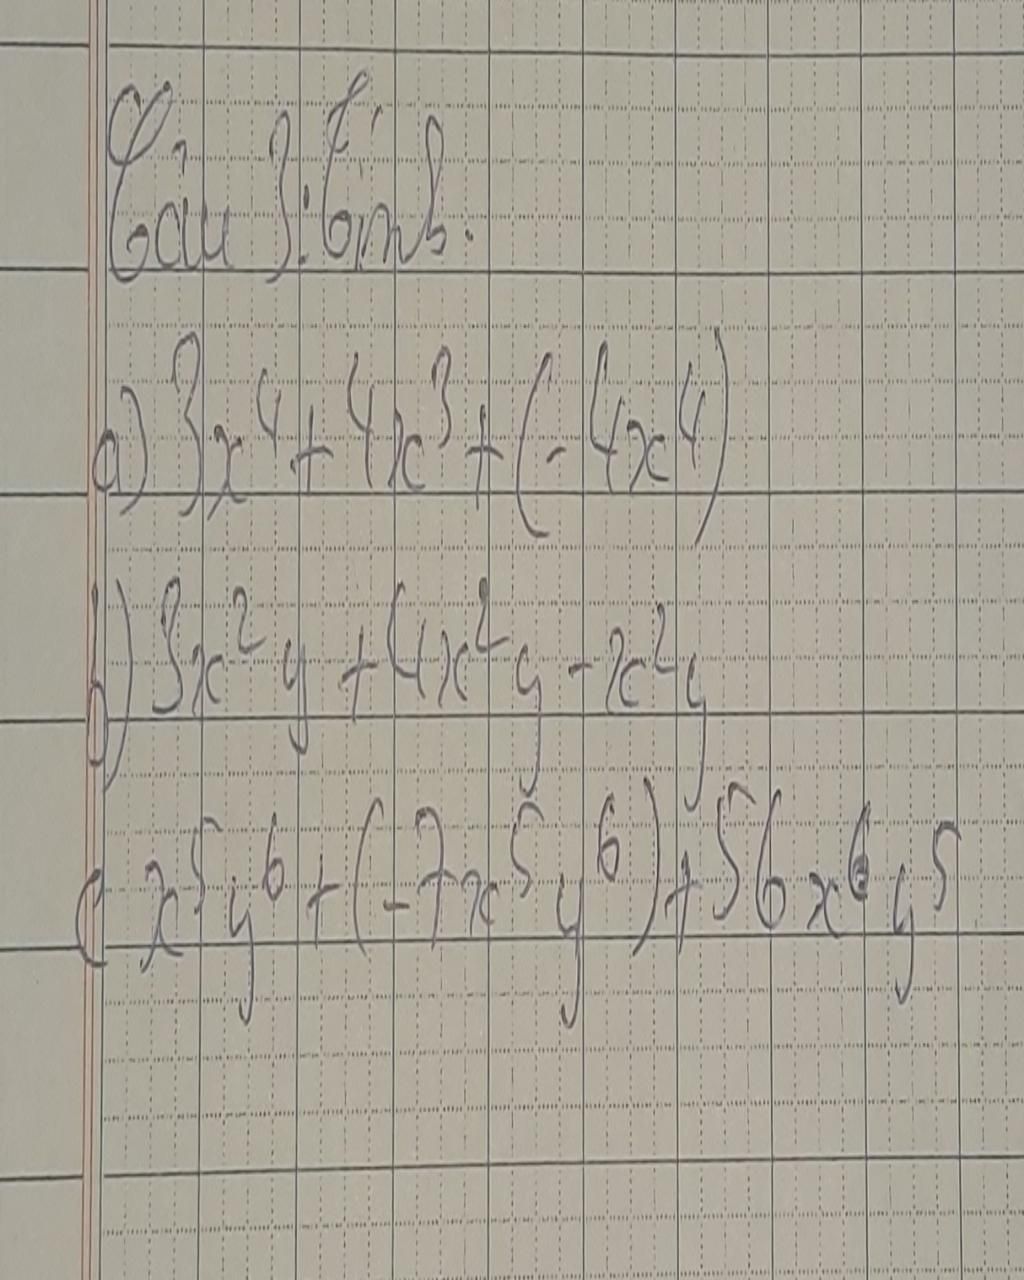 Câu 3: Tính.
a) 3x⁴ + 4x³ + (-4x⁴)
b) 3x²y + 4x²y - x²y
c x⁵y⁶ + (-7x⁵y⁶) + 56x⁶y⁵